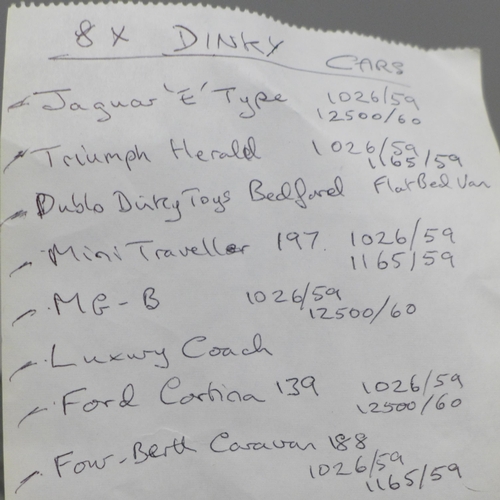 8 X DINKY CARS
Jaguar 'E' Type 1026/59
12500/60
Triumph Herald 1026/59
1165/59
Dublo Dinky Toys Bedford Flat Bed Van
Mini Traveller 197. 1026/59
1165/59
MG-B 1026/59
12500/60
Luxury Coach
Ford Cortina 139 1026/59
12500/60
Four-Berth Caravan 188
1026/59
1165/59